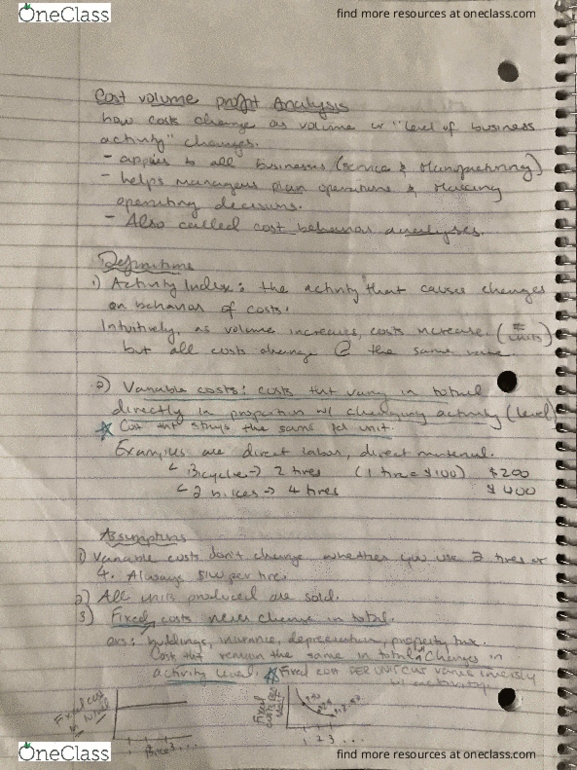 OneClass
find more resources at oneclass.com
Cost volume profit Analysis
how costs change as volume or "level of business
activity" changes.
- applies to all businesses (service & Manufacturing)
- helps managers plan operations & Making
operating decisions.
- Also called cost behavior analysis.
Definitions
1) Activity Index: the activity that causes changes
on behavior of costs.
Intuitively, as volume increases, costs increase. (= units)
but all costs change @ the same
2) Variable costs: costs tht vary in total
directly in proportion w/ changing activity (level)
☆ Cost tht stays the same per unit.
Examples are direct labor, direct material.
↳ Bicycle → 2 tires (1 tire = $100) $200
↳ 2 bikes → 4 tires $400
Assumptions
1) Variable costs don't change whether you use 2 tires or
4. Always $100 per tire.
2) All units produced are sold.
3) Fixed costs: never change in total.
exs: buildings, insurance, depreciation, property tax.
Cost tht remain the same in total Changes in
activity level. ☆ Fixed cost PER UNIT varies inversely
Fixed cost
in total
Fixed
1 2 3 ...
OneClass
find more resources at oneclass.com